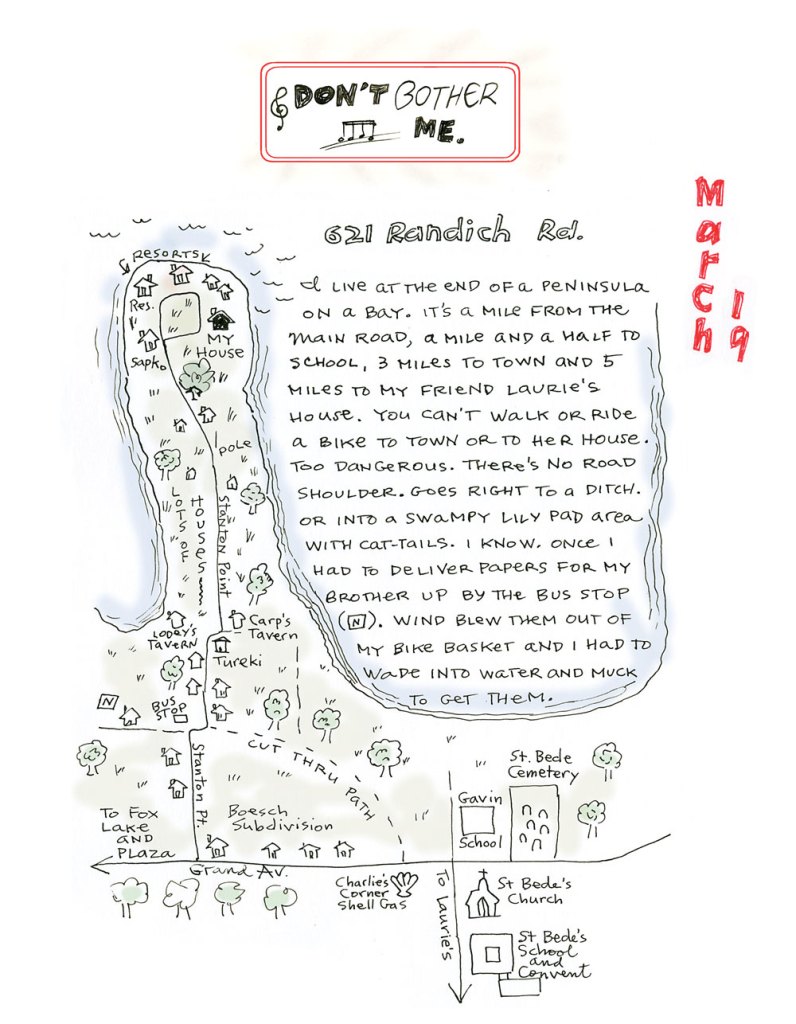 DON'T BOTHER
ME.
March 19
621 Randich Rd.
I LIVE AT THE END OF A PENINSULA
ON A BAY. IT'S A MILE FROM THE
MAIN ROAD, A MILE AND A HALF TO
SCHOOL, 3 MILES TO TOWN AND 5
MILES TO MY FRIEND LAURIE'S
HOUSE. YOU CAN'T WALK OR RIDE
A BIKE TO TOWN OR TO HER HOUSE.
TOO DANGEROUS. THERE'S NO ROAD
SHOULDER. GOES RIGHT TO A DITCH.
OR INTO A SWAMPY LILY PAD AREA
WITH CAT-TAILS. I KNOW. ONCE I
HAD TO DELIVER PAPERS FOR MY
BROTHER UP BY THE BUS STOP
(N). WIND BLEW THEM OUT OF
MY BIKE BASKET AND I HAD TO
WADE INTO WATER AND MUCK
TO GET THEM.
RESORTS
Res.
MY
HOUSE
Sapko
pole
LOTS OF
HOUSES
Stanton Point
LODEY'S
TAVERN
Carp's
Tavern
Tureki
N
BUS
STOP
CUT THRU PATH
Stanton Pt.
To Fox
Lake
AND
PLAZA
Boesch
Subdivision
Grand Av.
Charlie's
Corner
Shell Gas
Gavin
School
St. Bede
Cemetery
To Laurie's
St Bede's
Church
St Bede's
School
and
Convent